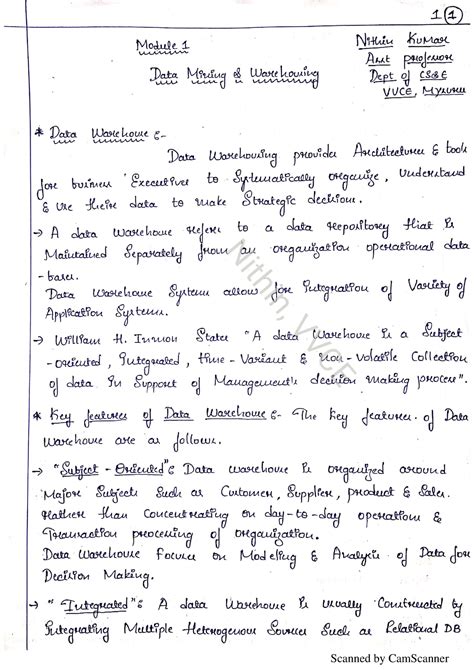 1 (1)
Nithin Kumar
Module 1
Asst professor
Data Mining & Warehousing
Dept of CS&E
VVCE, Mysuru
* Data Warehouse :-
Data Warehousing provides Architectures & tools
for business Executives to Systematically organize, Understand
& use their data to make Strategic decisions.
→ A data Warehouse refers to a data repository that is
Maintained Separately from an organization operational data
-bases.
Data Warehouse Systems allows for Integration of Variety of
Application Systems.
→ William H. Inmon States "A data Warehouse is a Subject
-oriented, Integrated, time-Variant & non-Volatile Collection
of data in Support of Management's decision making process".
* Key features of Data Warehouse :- The key features of Data
Warehouse are as follows.
→ "Subject-Oriented": Data warehouse is organized around
Major Subjects Such as Customer, Supplier, product & Sales.
Rather than Concentrating on day-to-day operations &
Transaction processing of organization.
Data Warehouse Focuses on Modeling & Analysis of Data for
Decision Making.
→ "Integrated": A data Warehouse is usually Constructed by
Integrating Multiple Heterogenous Sources Such as Relational DB
Nithin, VVCE
Scanned by CamScanner